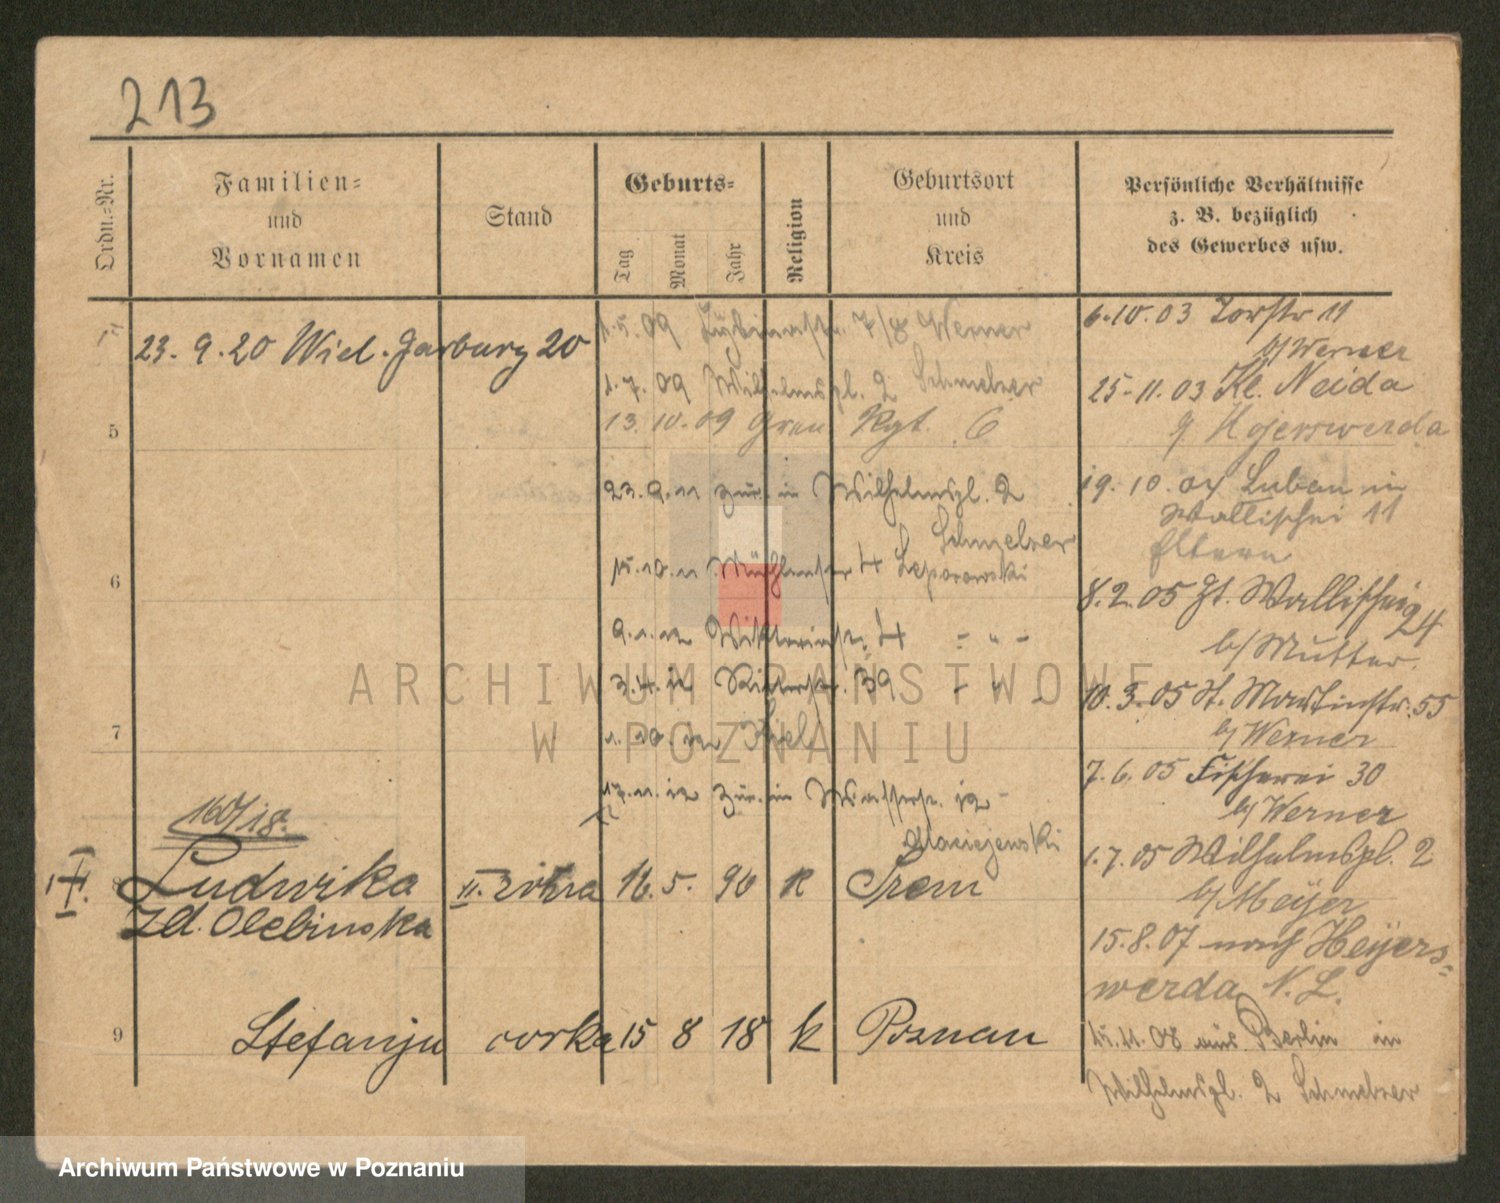 213
Ordn.=Nr.
Familien=
und
Vornamen
Stand
Geburts=
Tag
Monat
Jahr
Religion
Geburtsort
und
Kreis
Persönliche Verhältnisse
z. B. bezüglich
des Gewerbes usw.
23. 9. 20 Wiel. Garbary 20
1.5.09 7/8 Werner
1.7.09 Wilhelmspl. 2 Schmelzer
13.10.09 Gren Rgt. 6
23.9.11 zur. in Wilhelmspl. 2
Schmelzer
15.10.11 Mühlenstr 4 Leporowski
9.1.12 4 = " =
3.4.12 Ritterstr. 39 - " -
1.10.12 Kiel
17.11.12 zur. in Wasserstr. 12
Maciejewski
6.10.03 Torstr 11
b/ Werner
25.11.03 Kl. Neida
Hojerswerda
19.10.04 Luban in
Wallischei 11
Eltern
8.2.05 Wallischei 24
b/ Mutter.
10.3.05 St. Martinstr. 55
b/ Werner
7.6.05 Fischerei 30
b/ Werner
1.7.05 Wilhelmspl. 2
b/ Meijer
15.8.07 nach Heyers=
werda N. L.
15.11.08 aus Berlin in
Wilhelmspl. 2 Schmelzer
5
6
7
8
9
/18.
Ludwika
zd. Olebinska
II. żona 16. 5. 90 k Śrem
Stefanja corka 15 8 18 k Poznan
ARCHIWUM PAŃSTWOWE
W POZNANIU
Archiwum Państwowe w Poznaniu